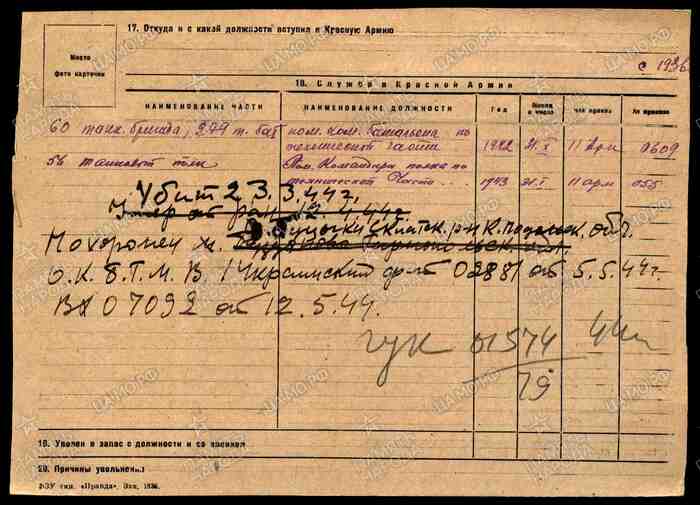 17. Откуда и с какой должности вступил в Красную Армию
Место
фото карточки
с 1936
18. Служба в Красной Армии
НАИМЕНОВАНИЕ ЧАСТИ НАИМЕНОВАНИЕ ДОЛЖНОСТИ Год Месяц и число Чей приказ № приказа
60 танк. бригада, 344 т. бат пом. ком. батальона по
технической части 1942 21.X 11 Арм 0609
56 танковой полк Пом. Командира полка по
технической части 1943 21.I 11 арм 055
Убит 23.3.44г.
Умер от ран 12.4.44г.
Похоронен м.
О.К. Б.Т.М.В. 1 Украинский фр-т 02881 от 5.5.44г.
Вх 07092 от 12.5.44.
гук 01574
79
19. Уволен в запас с должности и со званием
20. Причины увольнения
ФЗУ тип. «Правда», Зак. 1836.
ЦАМО.РФ
ПАМЯТЬ НАРОДА